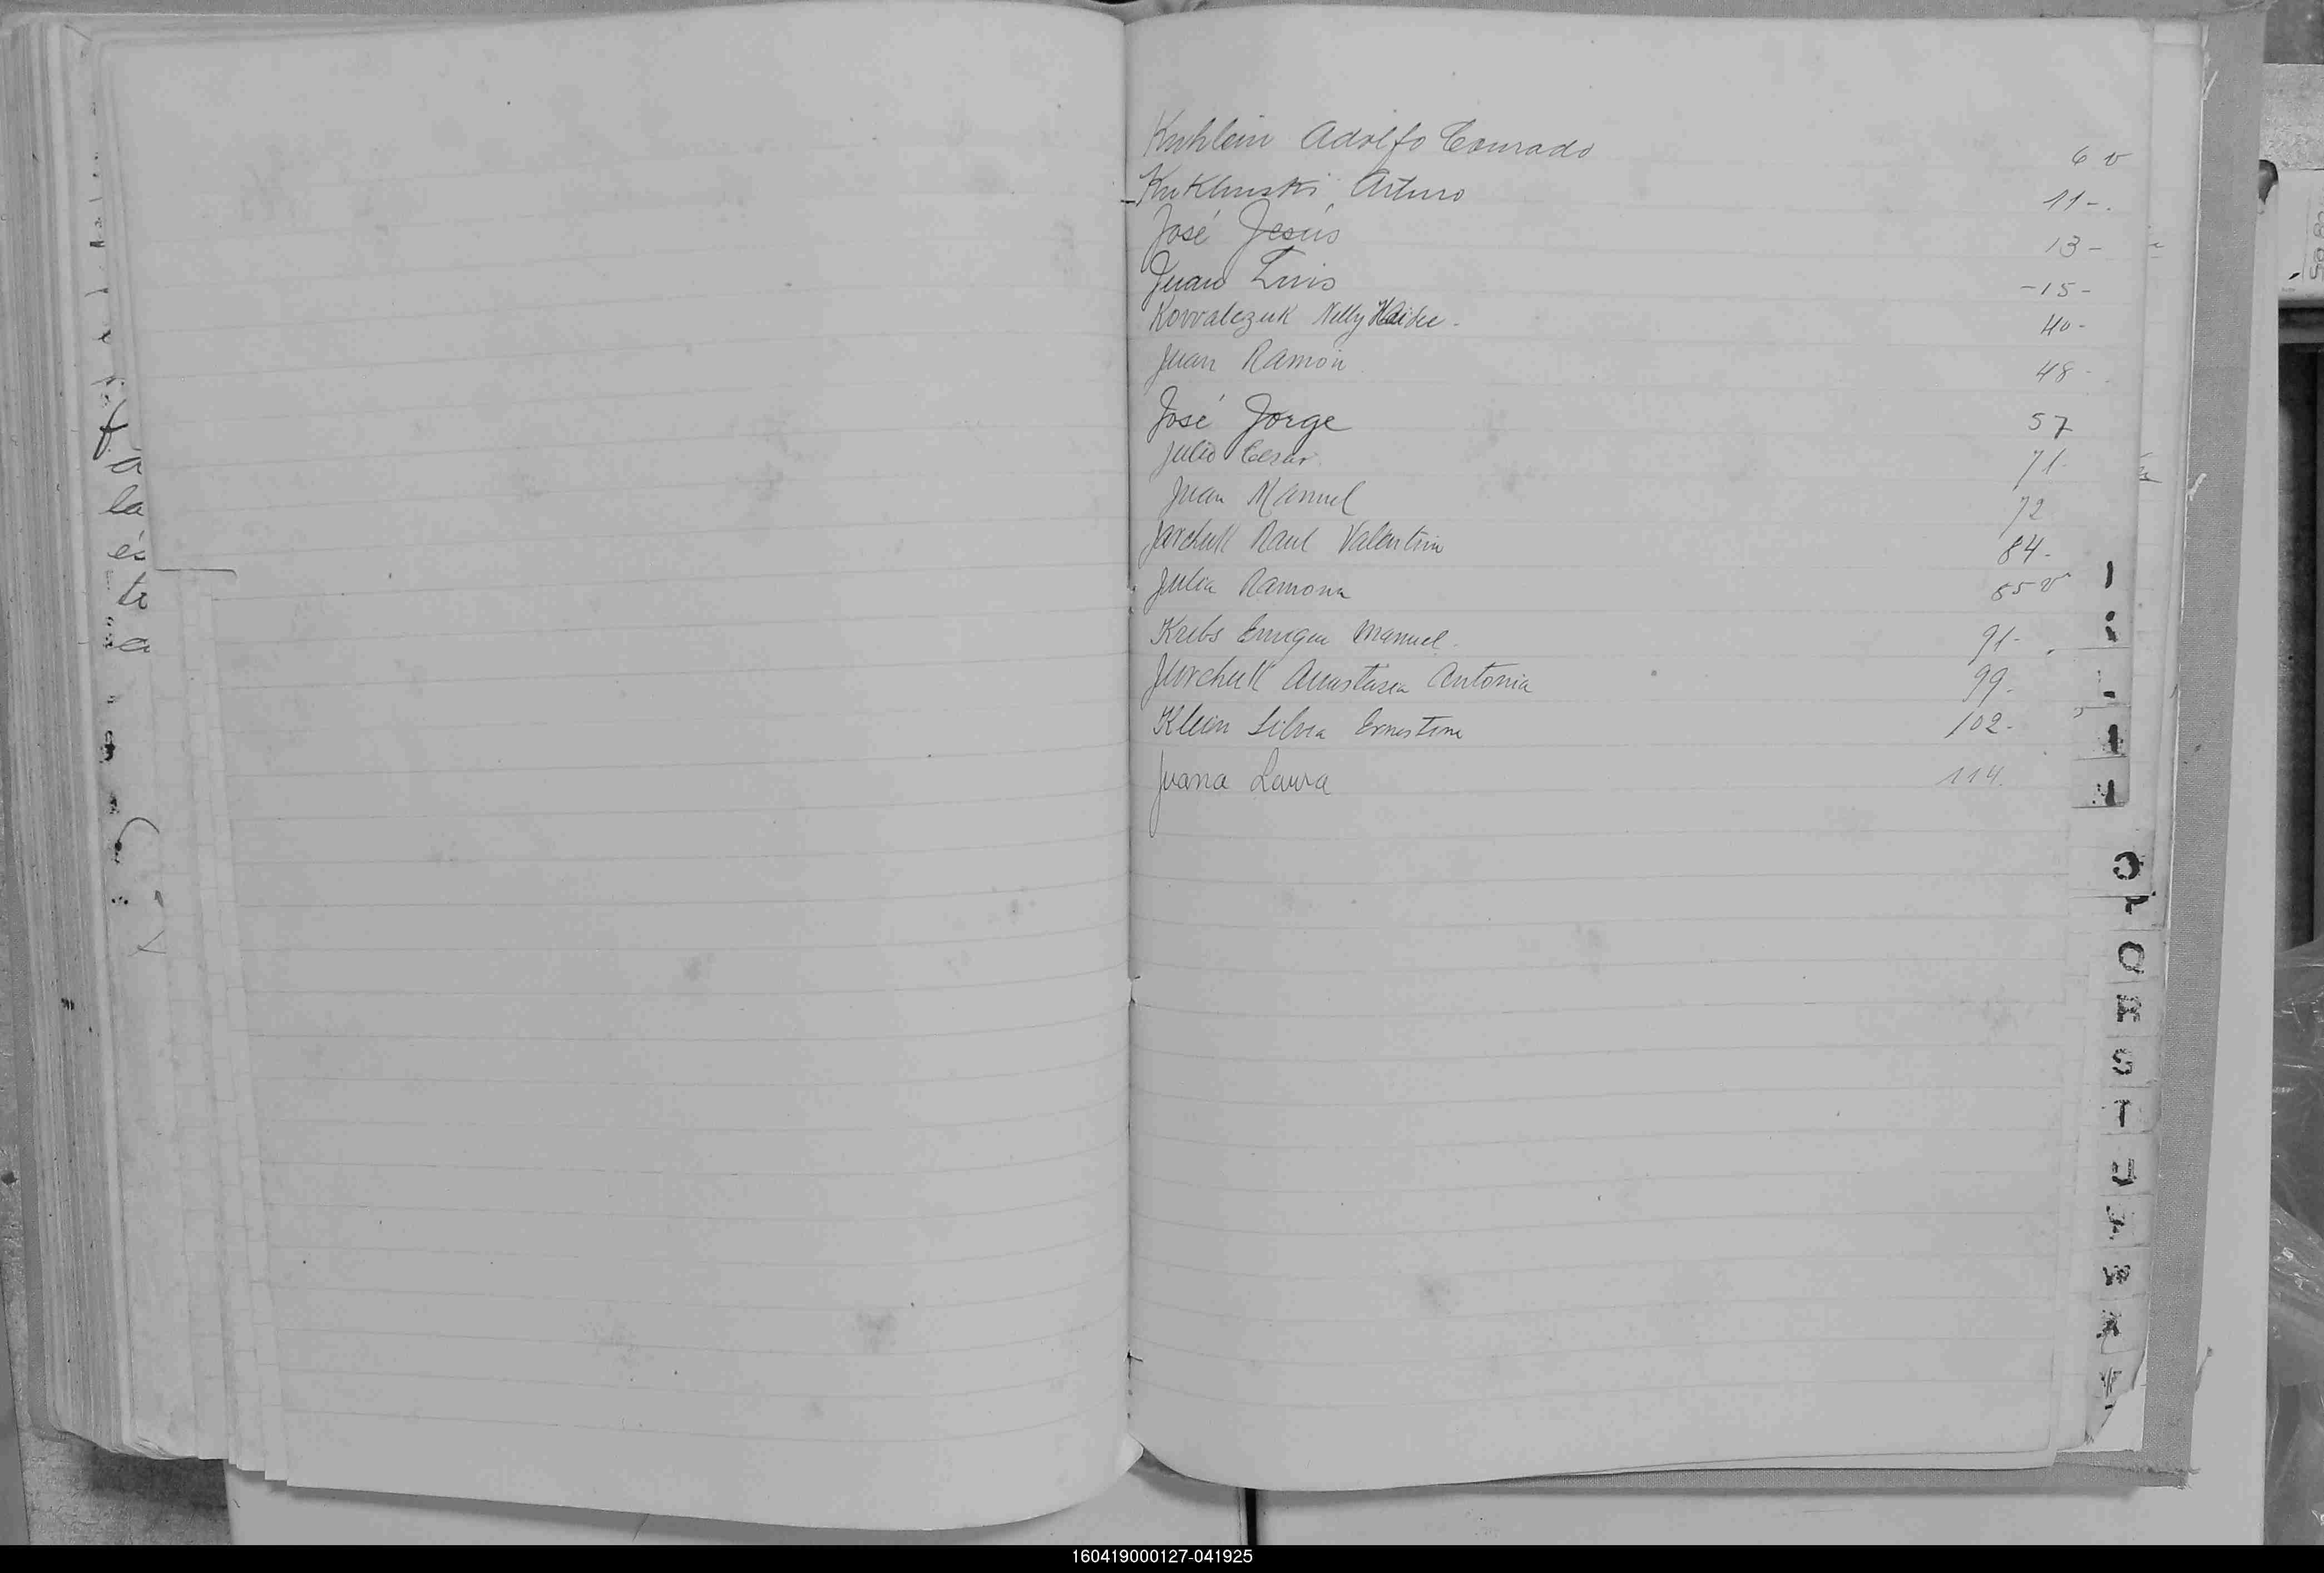 Kuhlein Adolfo Conrado 6 v
Kuklinski Arturo 11-.
José Jesús 13-
Juan Luis -15-
Kowalczuk Nelly Haidee- 40-
Juan Ramón 48-
José Jorge 57
Julio Cesar 71-
Juan Manuel 72
Jarchuk Raul Valentin 84-
Julia Ramona 85 v
Krebs Enrique Manuel- 91-
Jurchuk Anastasia Antonia 99-
Klein Silvia Ernestina 102-
Juana Laura 114.
O
R
S
T
160419000127-041925